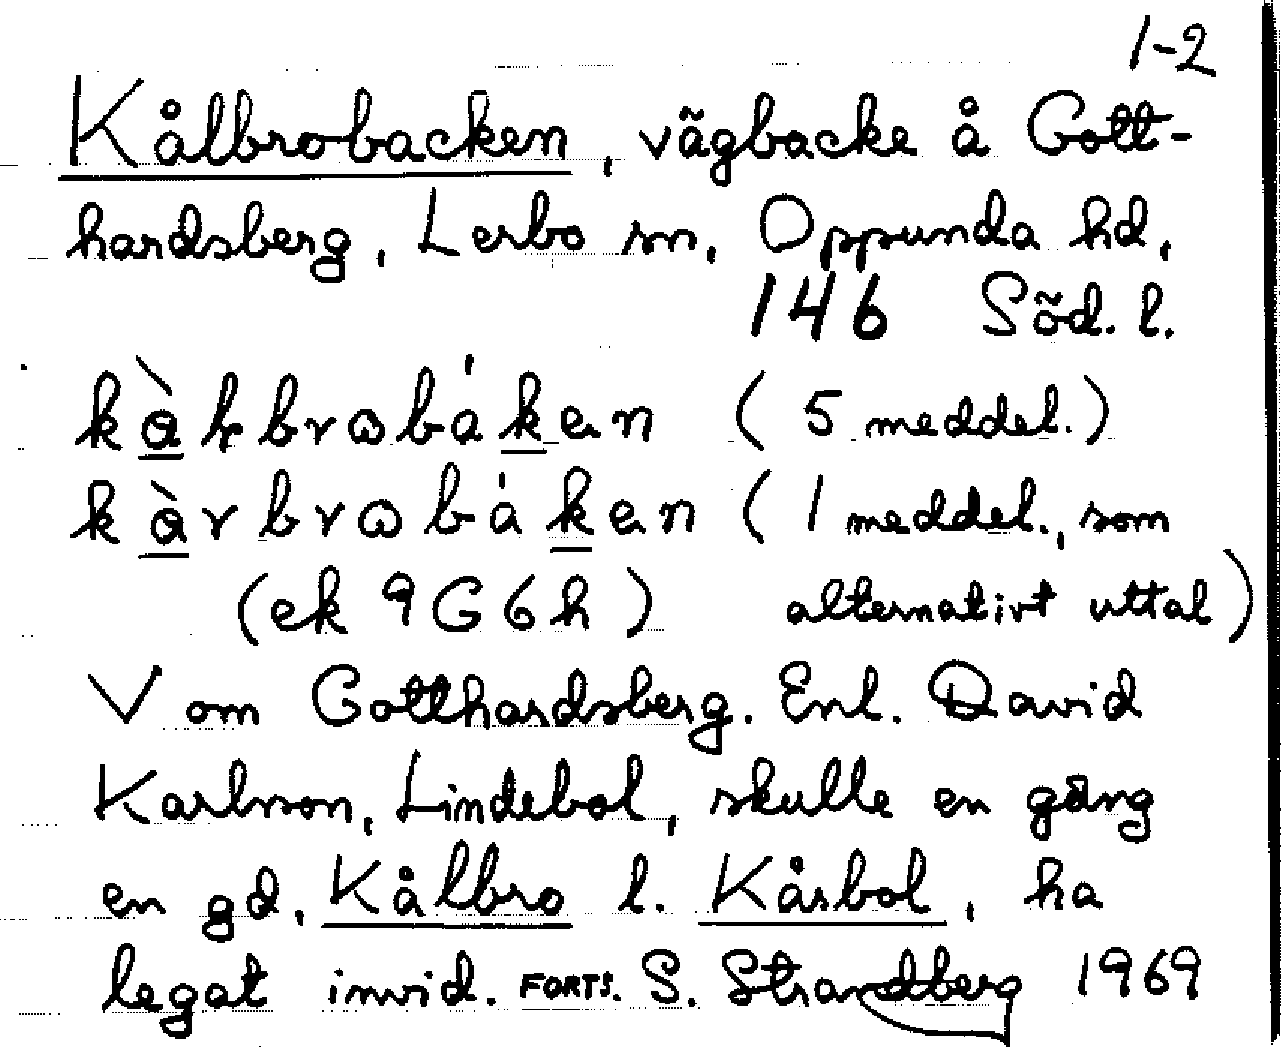 1-2
Kålbrobacken, vägbacke å Gott-
hardsberg, Lerbo sn, Oppunda hd,
146 Söd. l.
(5 meddel.)
(1 meddel., som
(ek 9G6h) alternativt uttal)
V om Gotthardsberg. Enl. David
Karlsson, Lindebol, skulle en gång
en gd, Kålbro l. Kårbol, ha
legat invid. FORTS. S. Strandberg 1969